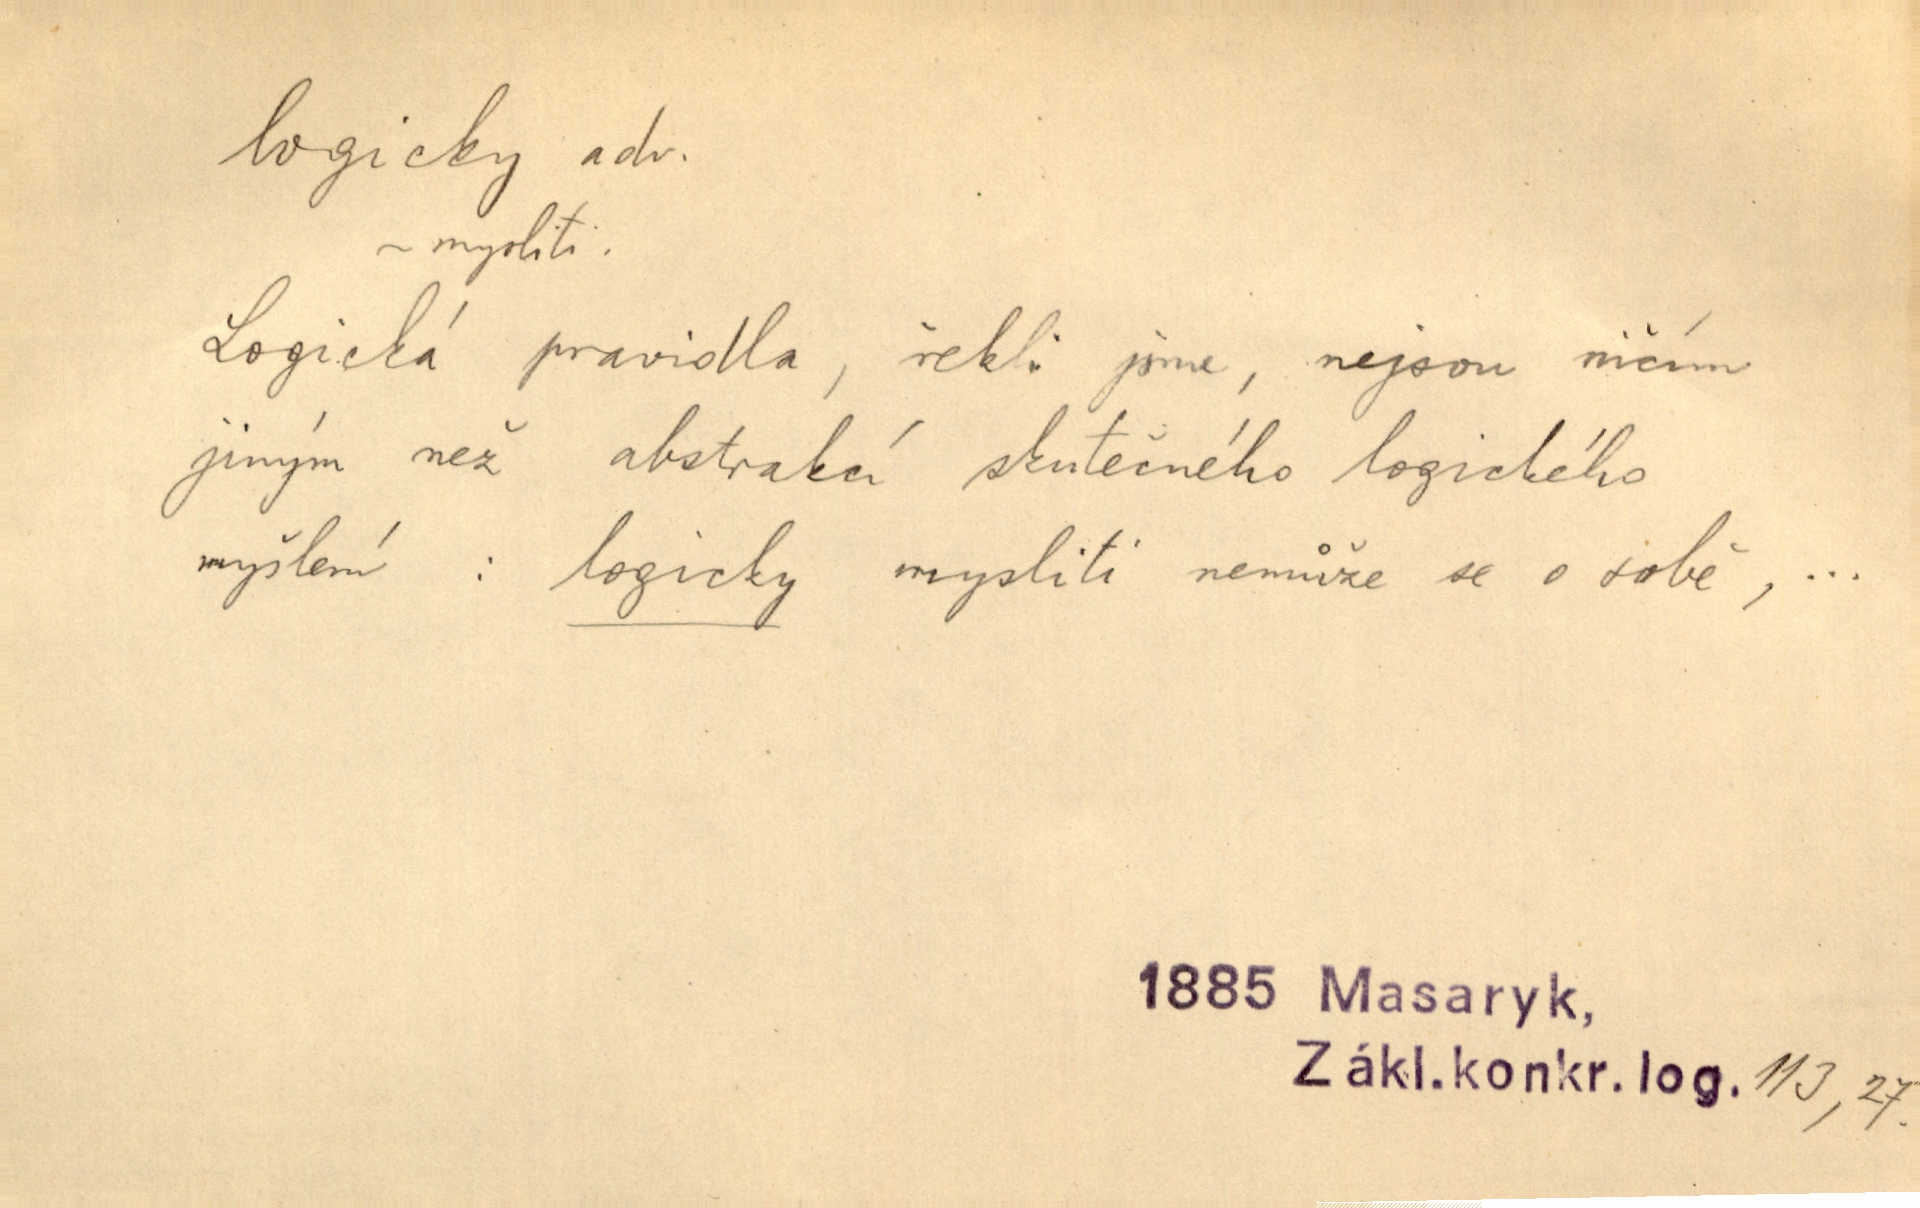 logicky adv.
~ mysliti.
Logická pravidla, řekli jsme, nejsou ničím
jiným než abstrakcí skutečného logického
myšlení : logicky mysliti nemůže se o sobě, ...
1885 Masaryk,
Zákl.konkr.log. 113, 27.